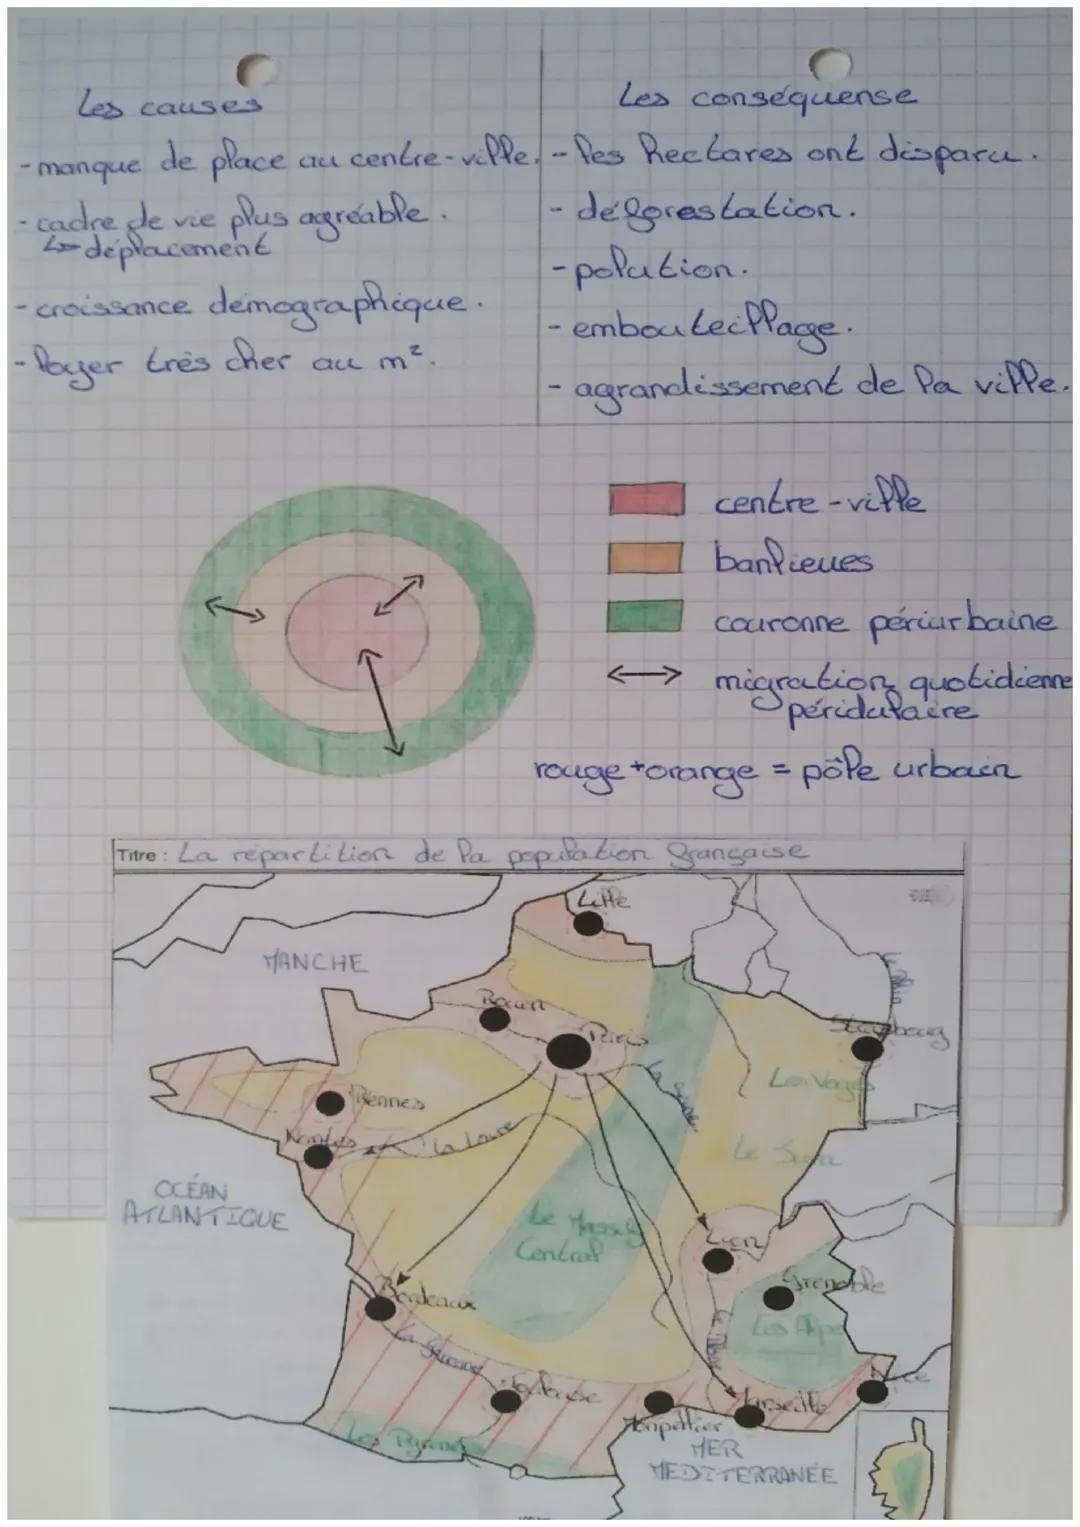 Les causes
- manque de place au centre-ville.
- cadre de vie plus agréable.
↳ déplacement
- croissance démographique.
- loyer très cher au m².
Les conséquense
- les hectares ont disparu.
- déforestation.
- polution.
- embouteillage.
- agrandissement de la ville.
centre-ville
banlieues
couronne périurbaine
↔ migration quotidienne
péridulaire
rouge + orange = pôle urbain
Titre : La répartition de la population française
Lille
MANCHE
Rouen
Paris
Strasbourg
La Seine
Les Vosges
Rennes
Nantes
La Loire
Le Jura
OCÉAN
ATLANTIQUE
Le Massif
Central
Lyon
Grenoble
Bordeaux
Les Alpes
La Garonne
Le Rhône
Nice
Toulouse
Marseille
Monpellier
Les Pyrénées
MER
MEDITERRANÉE